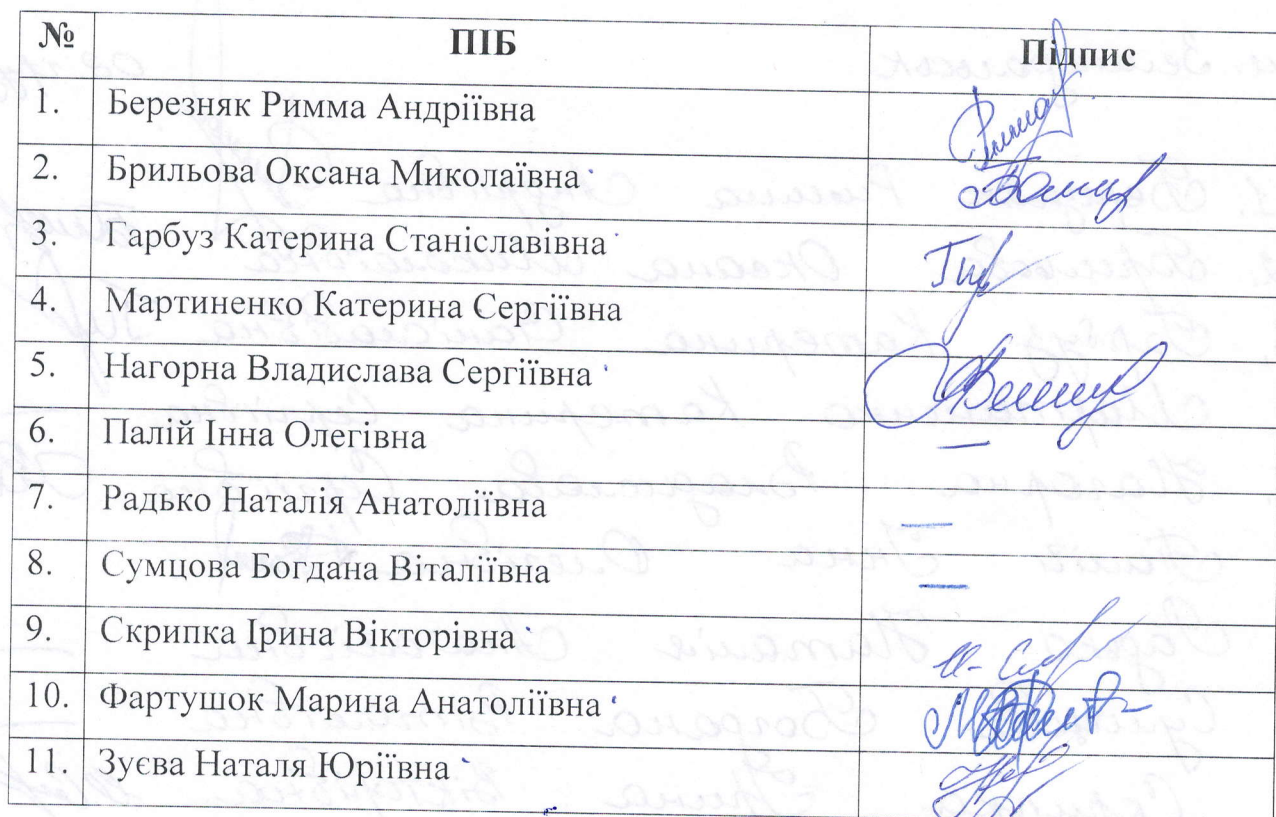 № ПІБ Підпис
1. Березняк Римма Андріївна
2. Брильова Оксана Миколаївна
3. Гарбуз Катерина Станіславівна
4. Мартиненко Катерина Сергіївна
5. Нагорна Владислава Сергіївна
6. Палій Інна Олегівна —
7. Радько Наталія Анатоліївна —
8. Сумцова Богдана Віталіївна —
9. Скрипка Ірина Вікторівна
10. Фартушок Марина Анатоліївна
11. Зуєва Наталя Юріївна